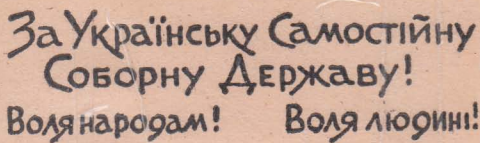 За Українську Самостійну
Соборну Державу!
Воля народам! Воля людині!